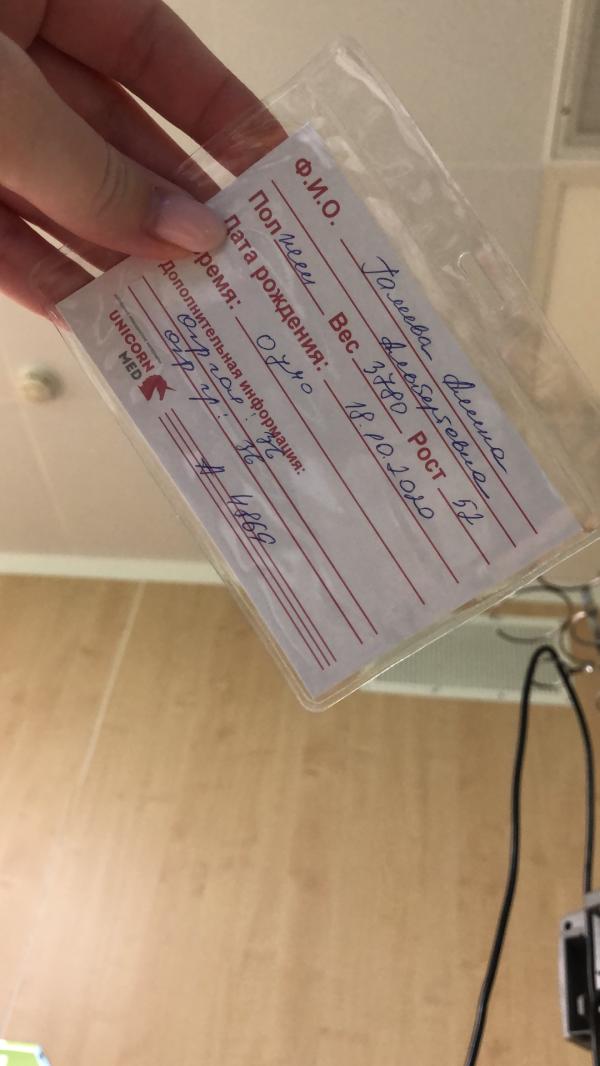 Ф.И.О. Галиева Алина
Альбертовна
Пол жен Вес 3780 Рост 52
Дата рождения: 18.10.2020
Время: 0740
Дополнительная информация:
окр гол: 36
окр гр: 36
# 4869
UNICORN
MED